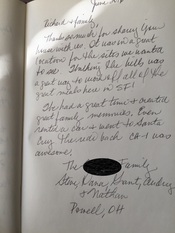 June 24
Richard & family,
Thanks so much for sharing your
house with us. It was in a great
location for the sites we wanted
to see. Walking the hills was
a great way to work off all of the
great meals here in SF!
We had a great time & created
great family memories. Even
rented a car & went to Santa
Cruz. The ride back CA-1 was
awesome.
The Family
Steve, Dana, Grant, Audrey
& Nathan
Powell, OH